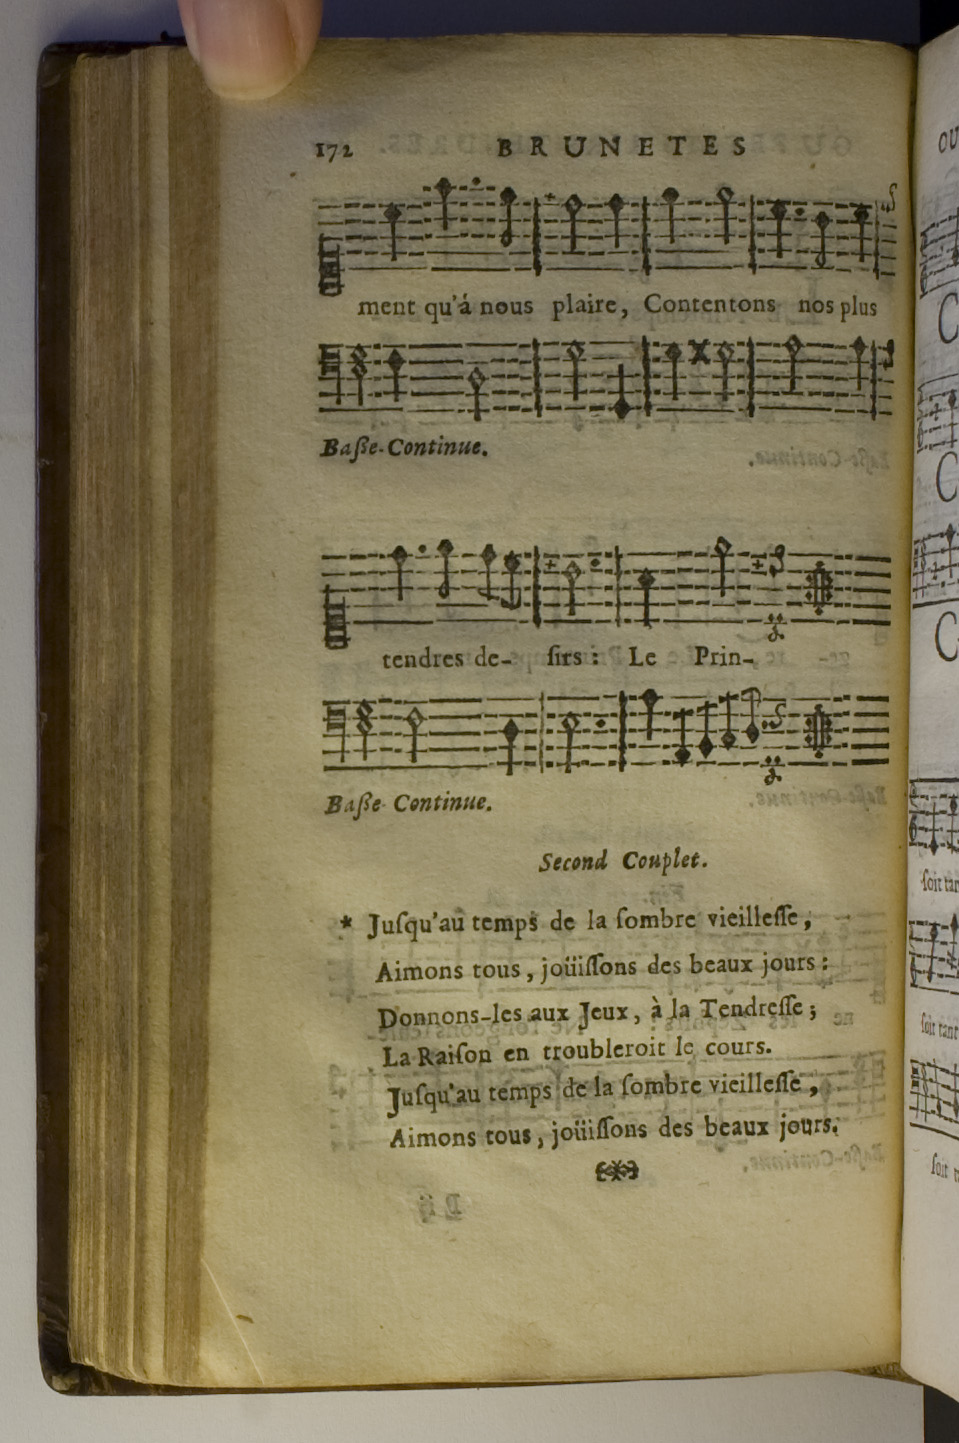 172 BRUNETES
ment qu'á nous plaire, Contentons nos plus
Baſſe-Continue.
tendres de- ſirs : Le Prin-
Baſſe Continue.
Second Couplet.
* Juſqu'au temps de la ſombre vieilleſſe,
Aimons tous, joüiſſons des beaux jours :
Donnons-les aux Jeux, à la Tendreſſe ;
La Raiſon en troubleroit le cours.
Juſqu'au temps de la ſombre vieilleſſe,
Aimons tous, joüiſſons des beaux jours.
OU
C
C
C
ſoit tan
ſoit tant
ſoit